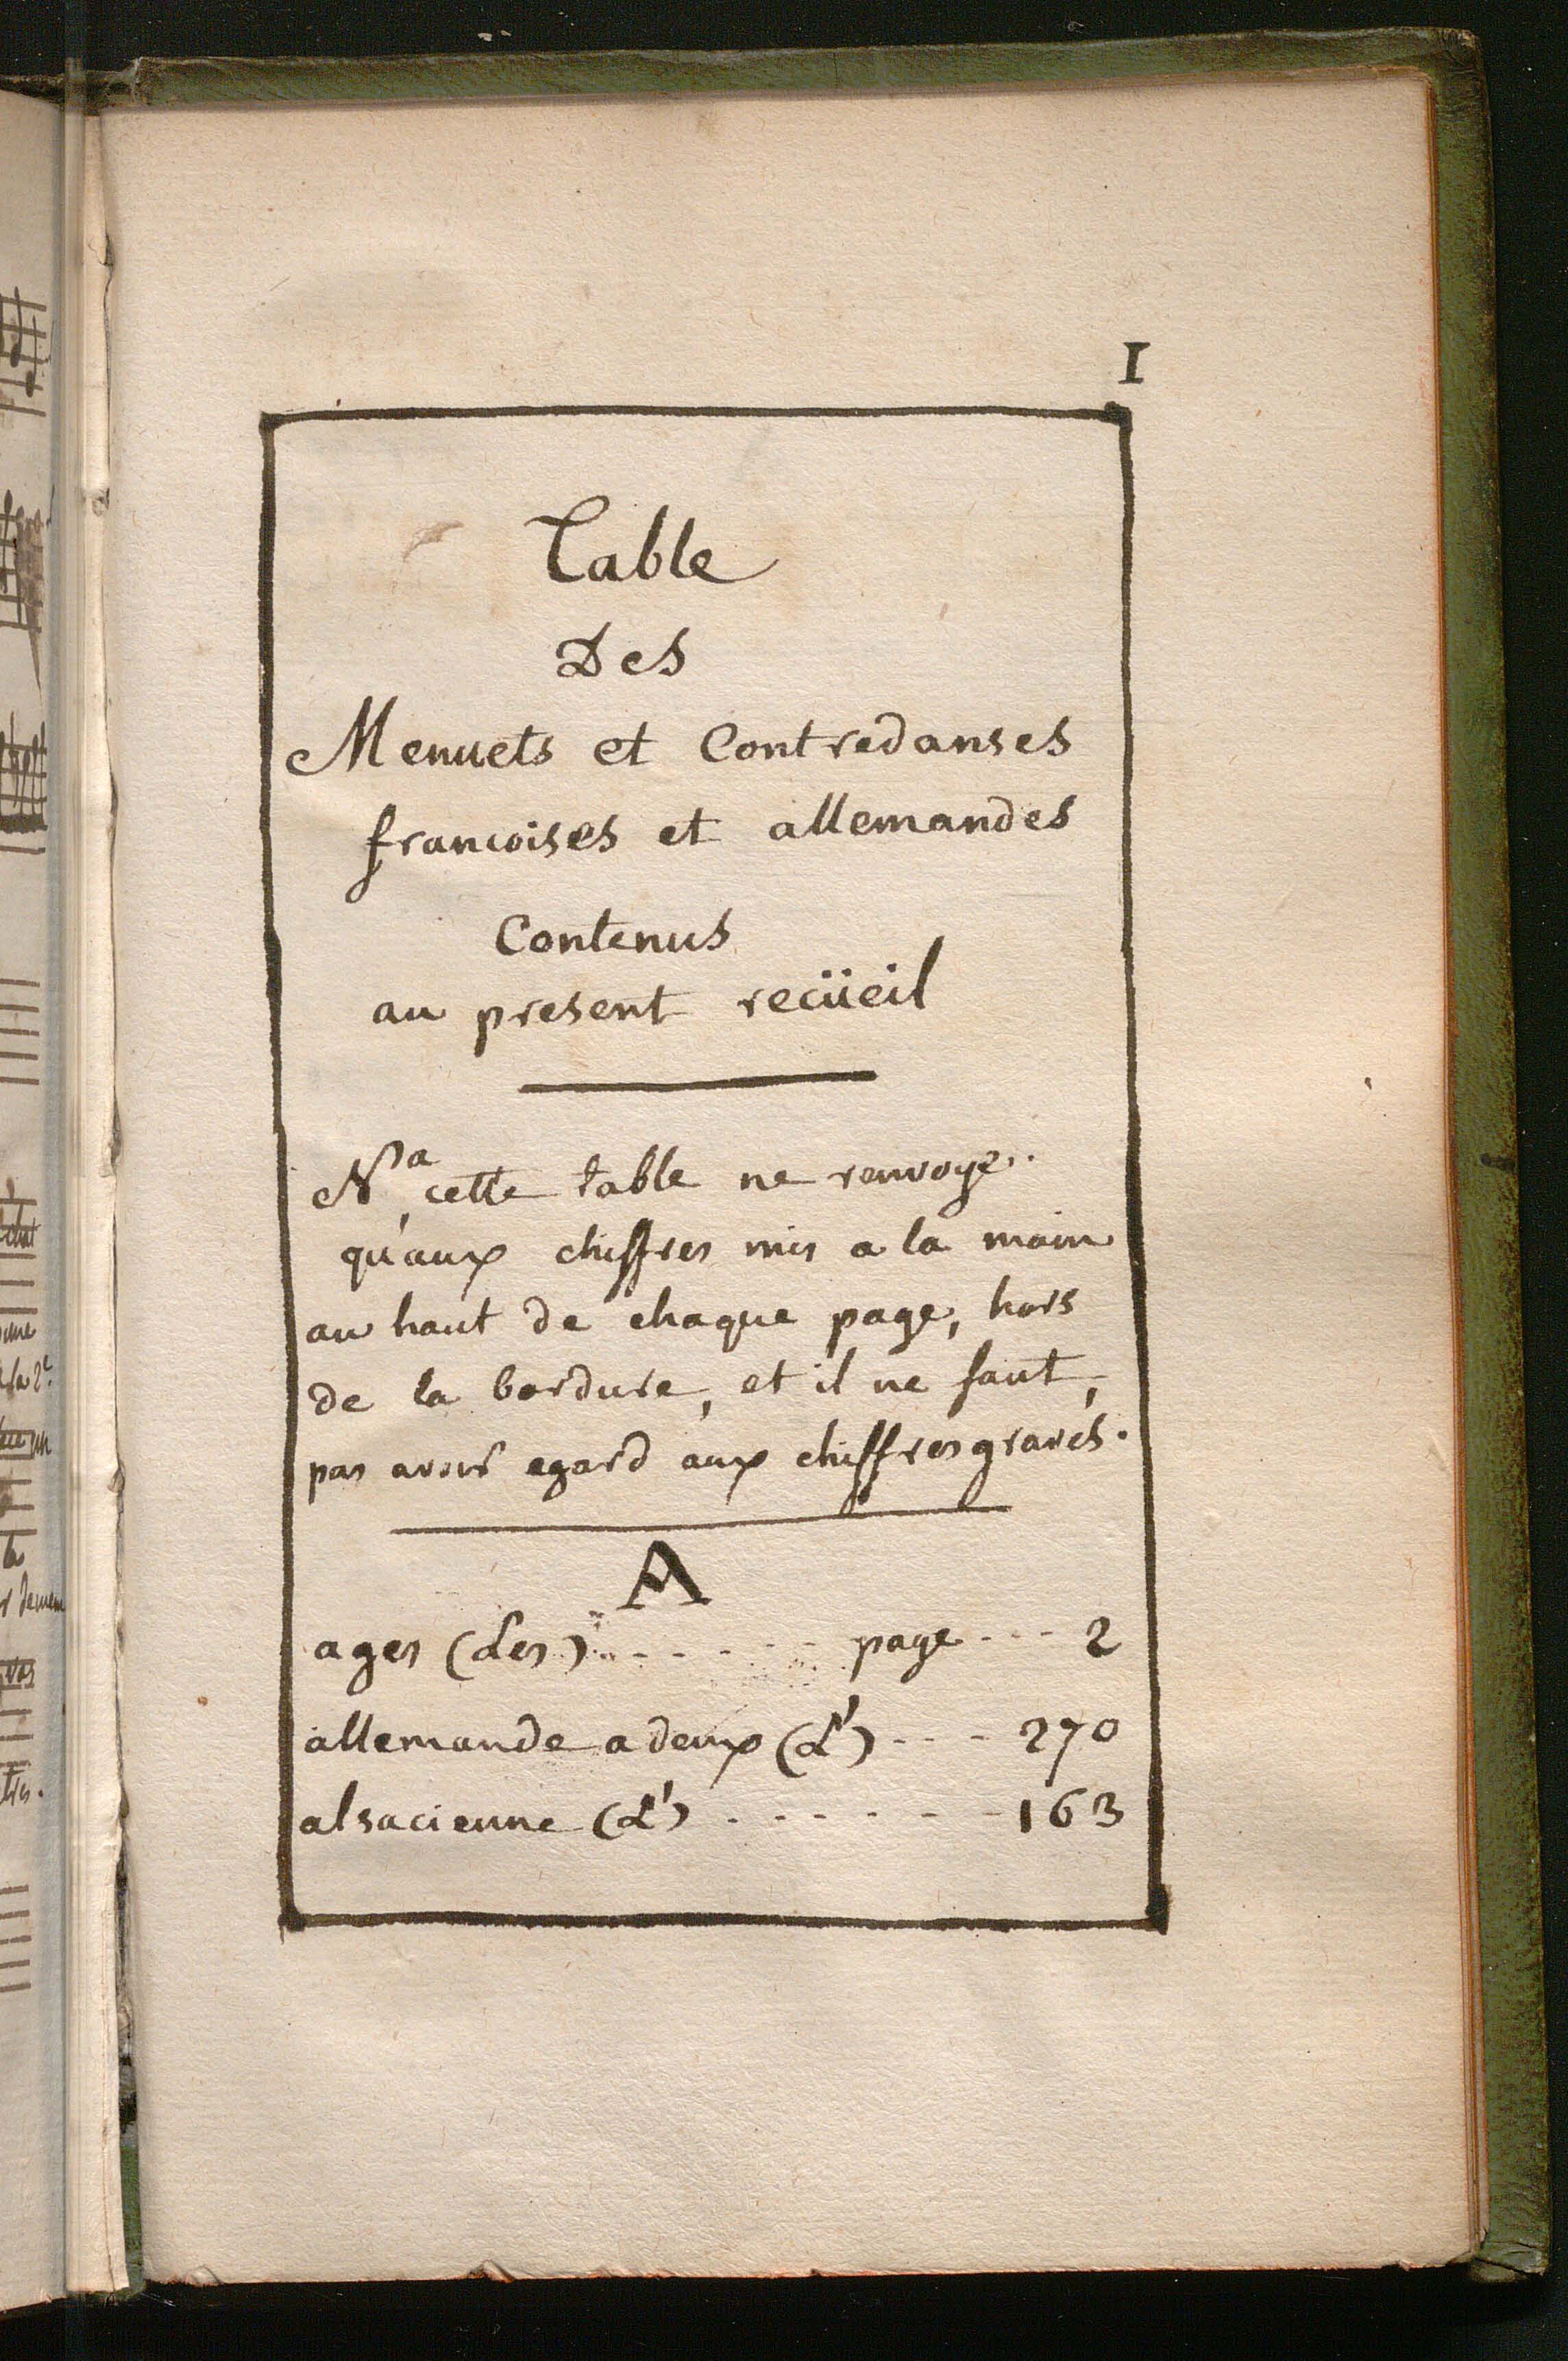 I
Table
Des
Menuets et Contredanses
francoises et allemandes
Contenus
au present recüeil
Na cette table ne renvoye
qu'aux chiffres mis a la main
au haut de chaque page, hors
de la bordure, et il ne faut,
pas avoir egard aux chiffres gravés.
A
ages (Les) - - - - - - page - - - 2
allemande a deux (L') - - - 270
alsacienne (L') - - - - - - 163